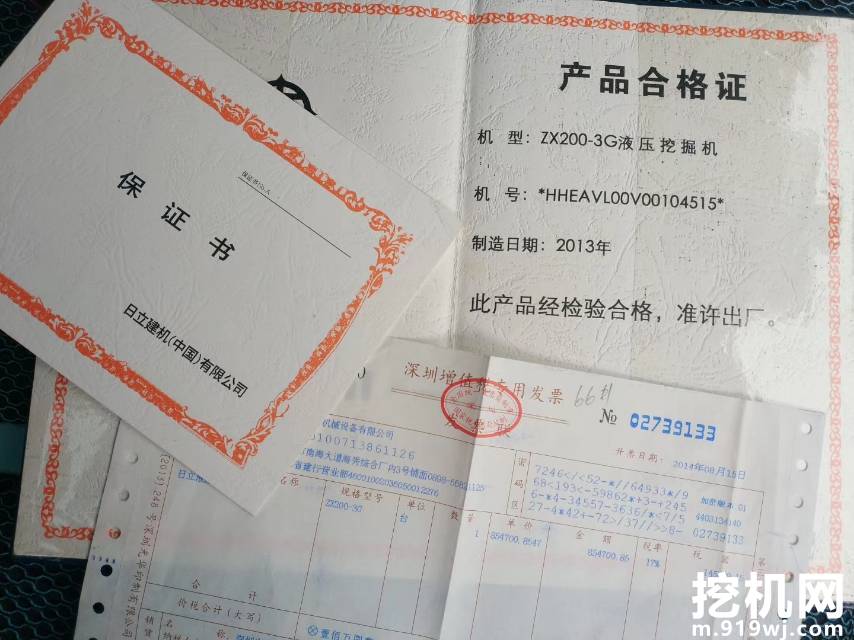 产品合格证
机 型：ZX200-3G液压挖掘机
机 号：*HHEAVL00V00104515*
制造日期：2013年
此产品经检验合格，准许出厂。
保证书No.A
保 证 书
日立建机(中国)有限公司
深圳增值税专用发票
66#
№ 02739133
开票日期：2014年08月15日
机械设备有限公司
100713861126
密码区
7246</<52-*//64933*/9
68<193<-59862*+3-+245
6-*4-34557-3636/*<7/5
27-4*42+-72>/37//>>8-
加密版本:01
4403134140
02739133
名称
规格型号
单位
数量
单价
金额
税率
税
ZX200-3G
台
1
854700.8547
854700.85
17%
合 计
价税合计（大写）
挖机网
m.919wj.com